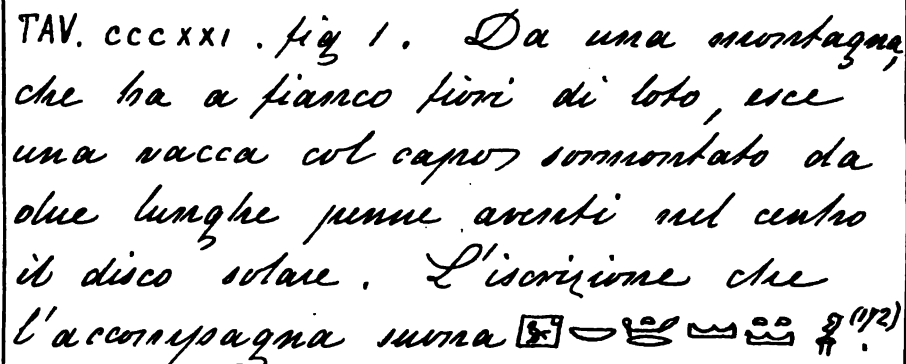 TAV. CCCXXI. fig 1. Da una montagna,
che ha a fianco fiori di loto, esce
una vacca col capo sormontato da
due lunghe penne aventi nel centro
il disco solare. L'iscrizione che
l'accompagna suona (172).